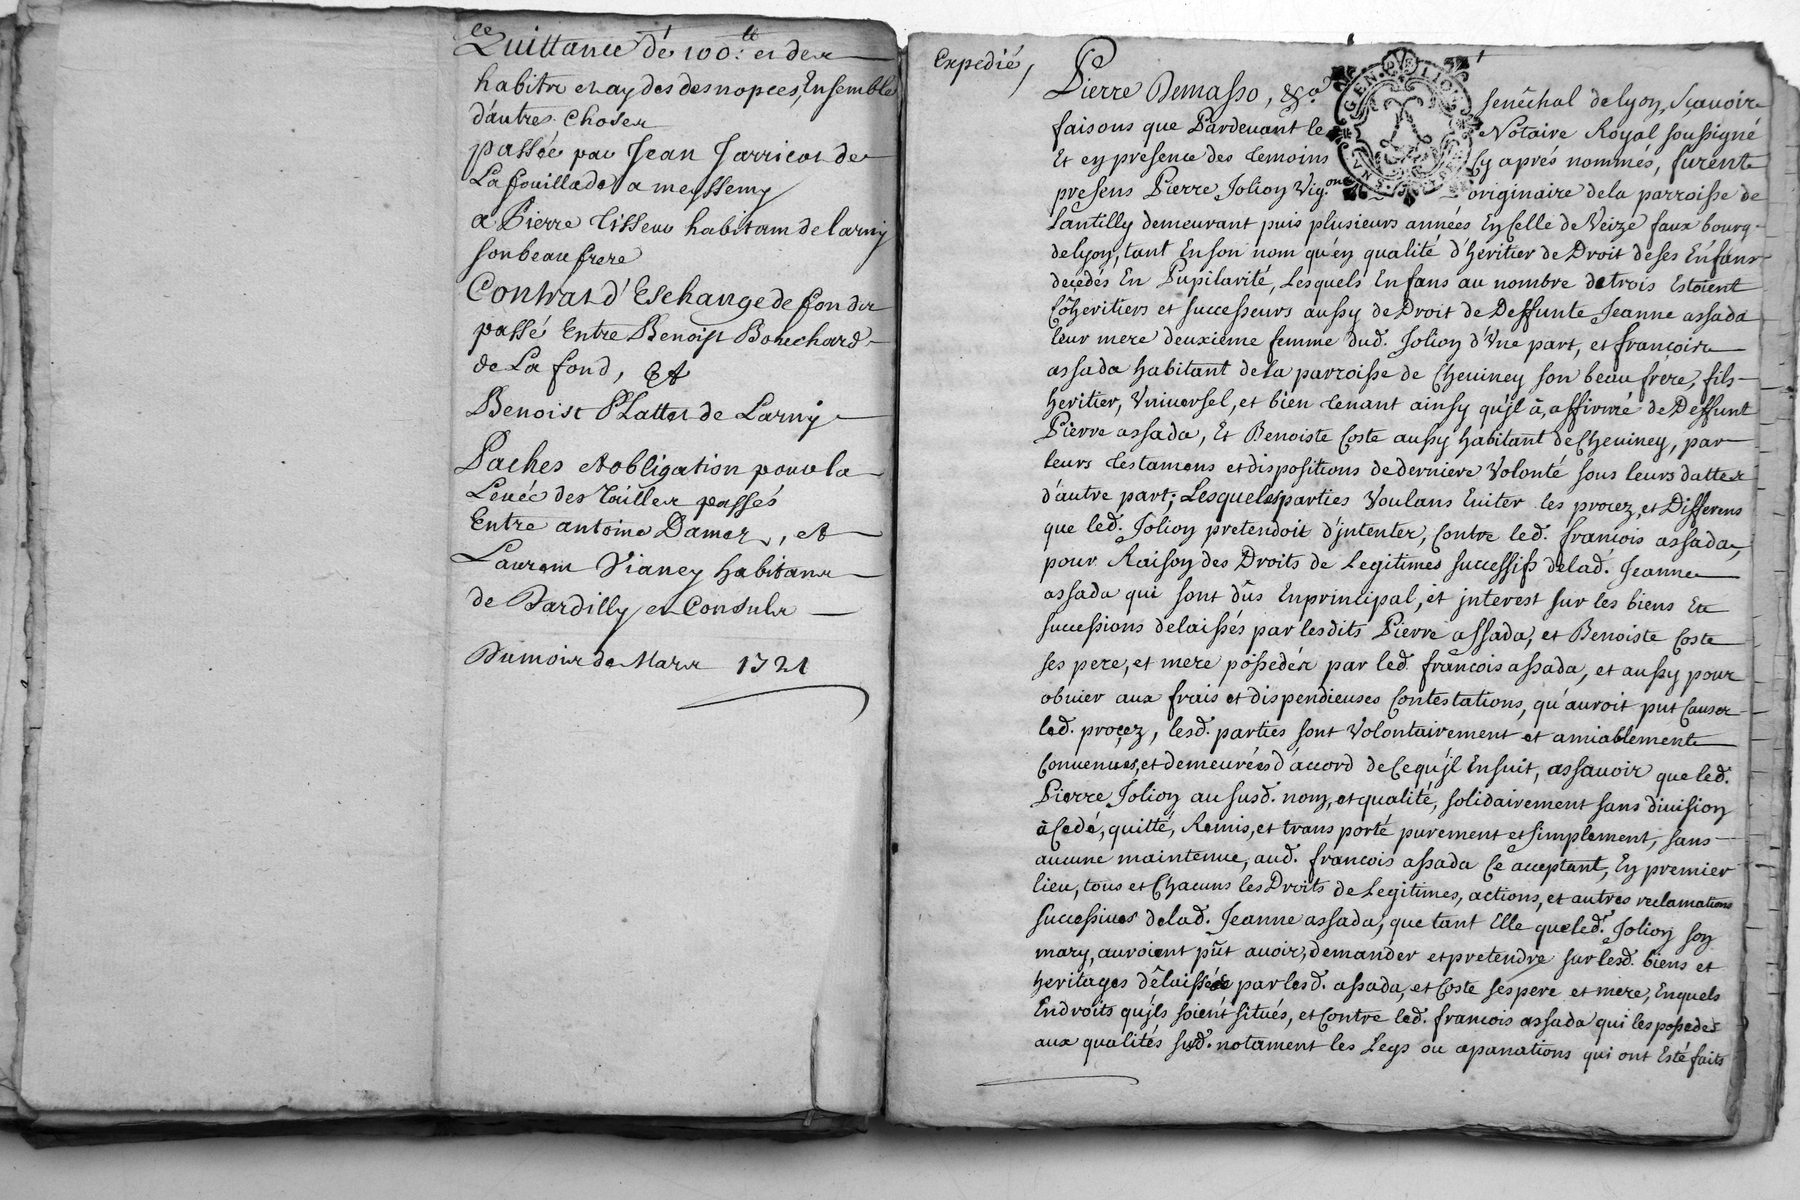 Quittance de 100.tt et des
habits et aydes des nopces, Ensemble
d'autres choses
passée par Jean Jarricot de
La fouillade a meyssemy
a Pierre Tisseur habitant de larny
son beau frere
Contrat d'Eschange de fonds
passé Entre Benoist Bouchard
de La fond, Et
Benoist Plattet de Larny
Paches et obligation pour la
Levée des Tailles passés
Entre antoine Damez, et
Laurent Vianey habitans
de Dardilly et Consuls
Du mois de Mars 1721
Expedié
Pierre Demasso, &ca senêchal de lyon, sçavoir
GEN. DE LION
faisons que Pardevant le Notaire Royal soussigné
Et en presence des temoins Cy aprés nommés, furent
presens Pierre Jolion Vig.on originaire de la parroisse de
Lantilly demeurant puis plusieurs années En Celle de Veize faux bourg
de lyon, tant En son nom qu'en qualité d'heritier de Droit de ses Enfans
deçedés En Pupilarité, Lesquels Enfans au nombre de trois Estoient
Coheritiers et successeurs aussy de Droit de Deffunte Jeanne assada
leur mere deuxiéme femme dud. Jolion d'Une part, et françois
assada habitant de la parroisse de Cheviney son beau frere, fils
heritier, Vniversel, et bien tenant ainsy qu'jl à, affirmé de Deffunt
Pierre assada, Et Benoiste Coste aussy habitant de Cheviney, par
leurs testamens et dispositions de derniere Volonté sous leurs dattes
d'autre part; Lesquelles parties Voulans Euiter les procez, et Differens
que led. Jolion pretendoit d'jntenter, Contre led. francois assada,
pour Raison des Droits de Legitimes successifs de lad. Jeanne
assada qui sont dûs En principal, et jnterest sur les biens Et
successions delaissés par lesdits Pierre assada, et Benoiste Coste
ses pere, et mere possedés par led. françois assada, et aussy pour
obuier aux frais et dispendieuses Contestations, qu'auroit put Causer
led. proçez, lesd. parties sont Volontairement et amiablement
Conuenues, et demeurées d'accord de Ce qu'jl Ensuit, assauoir que led.
Pierre Jolion au susd. nom, et qualité, solidairement sans diuision
à Cedé, quitté, Remis, et transporté purement et simplement, sans
aucune maintenue, aud. francois assada Ce acceptant, En premier
lieu, tous et Chacuns les Droits de Legitimes, actions, et autres reclamations
successiues de lad. Jeanne assada, que tant Elle que led. Jolion son
mary, auroient pût auoir, demander et pretendre sur lesd. biens et
heritages delaissés par lesd. assada, et Coste ses pere et mere, En quels
Endroits qu'jls soient situés, et Contre led. francois assada qui les possede
aux qualités susd. notament les Legs ou apanations qui ont Esté faits